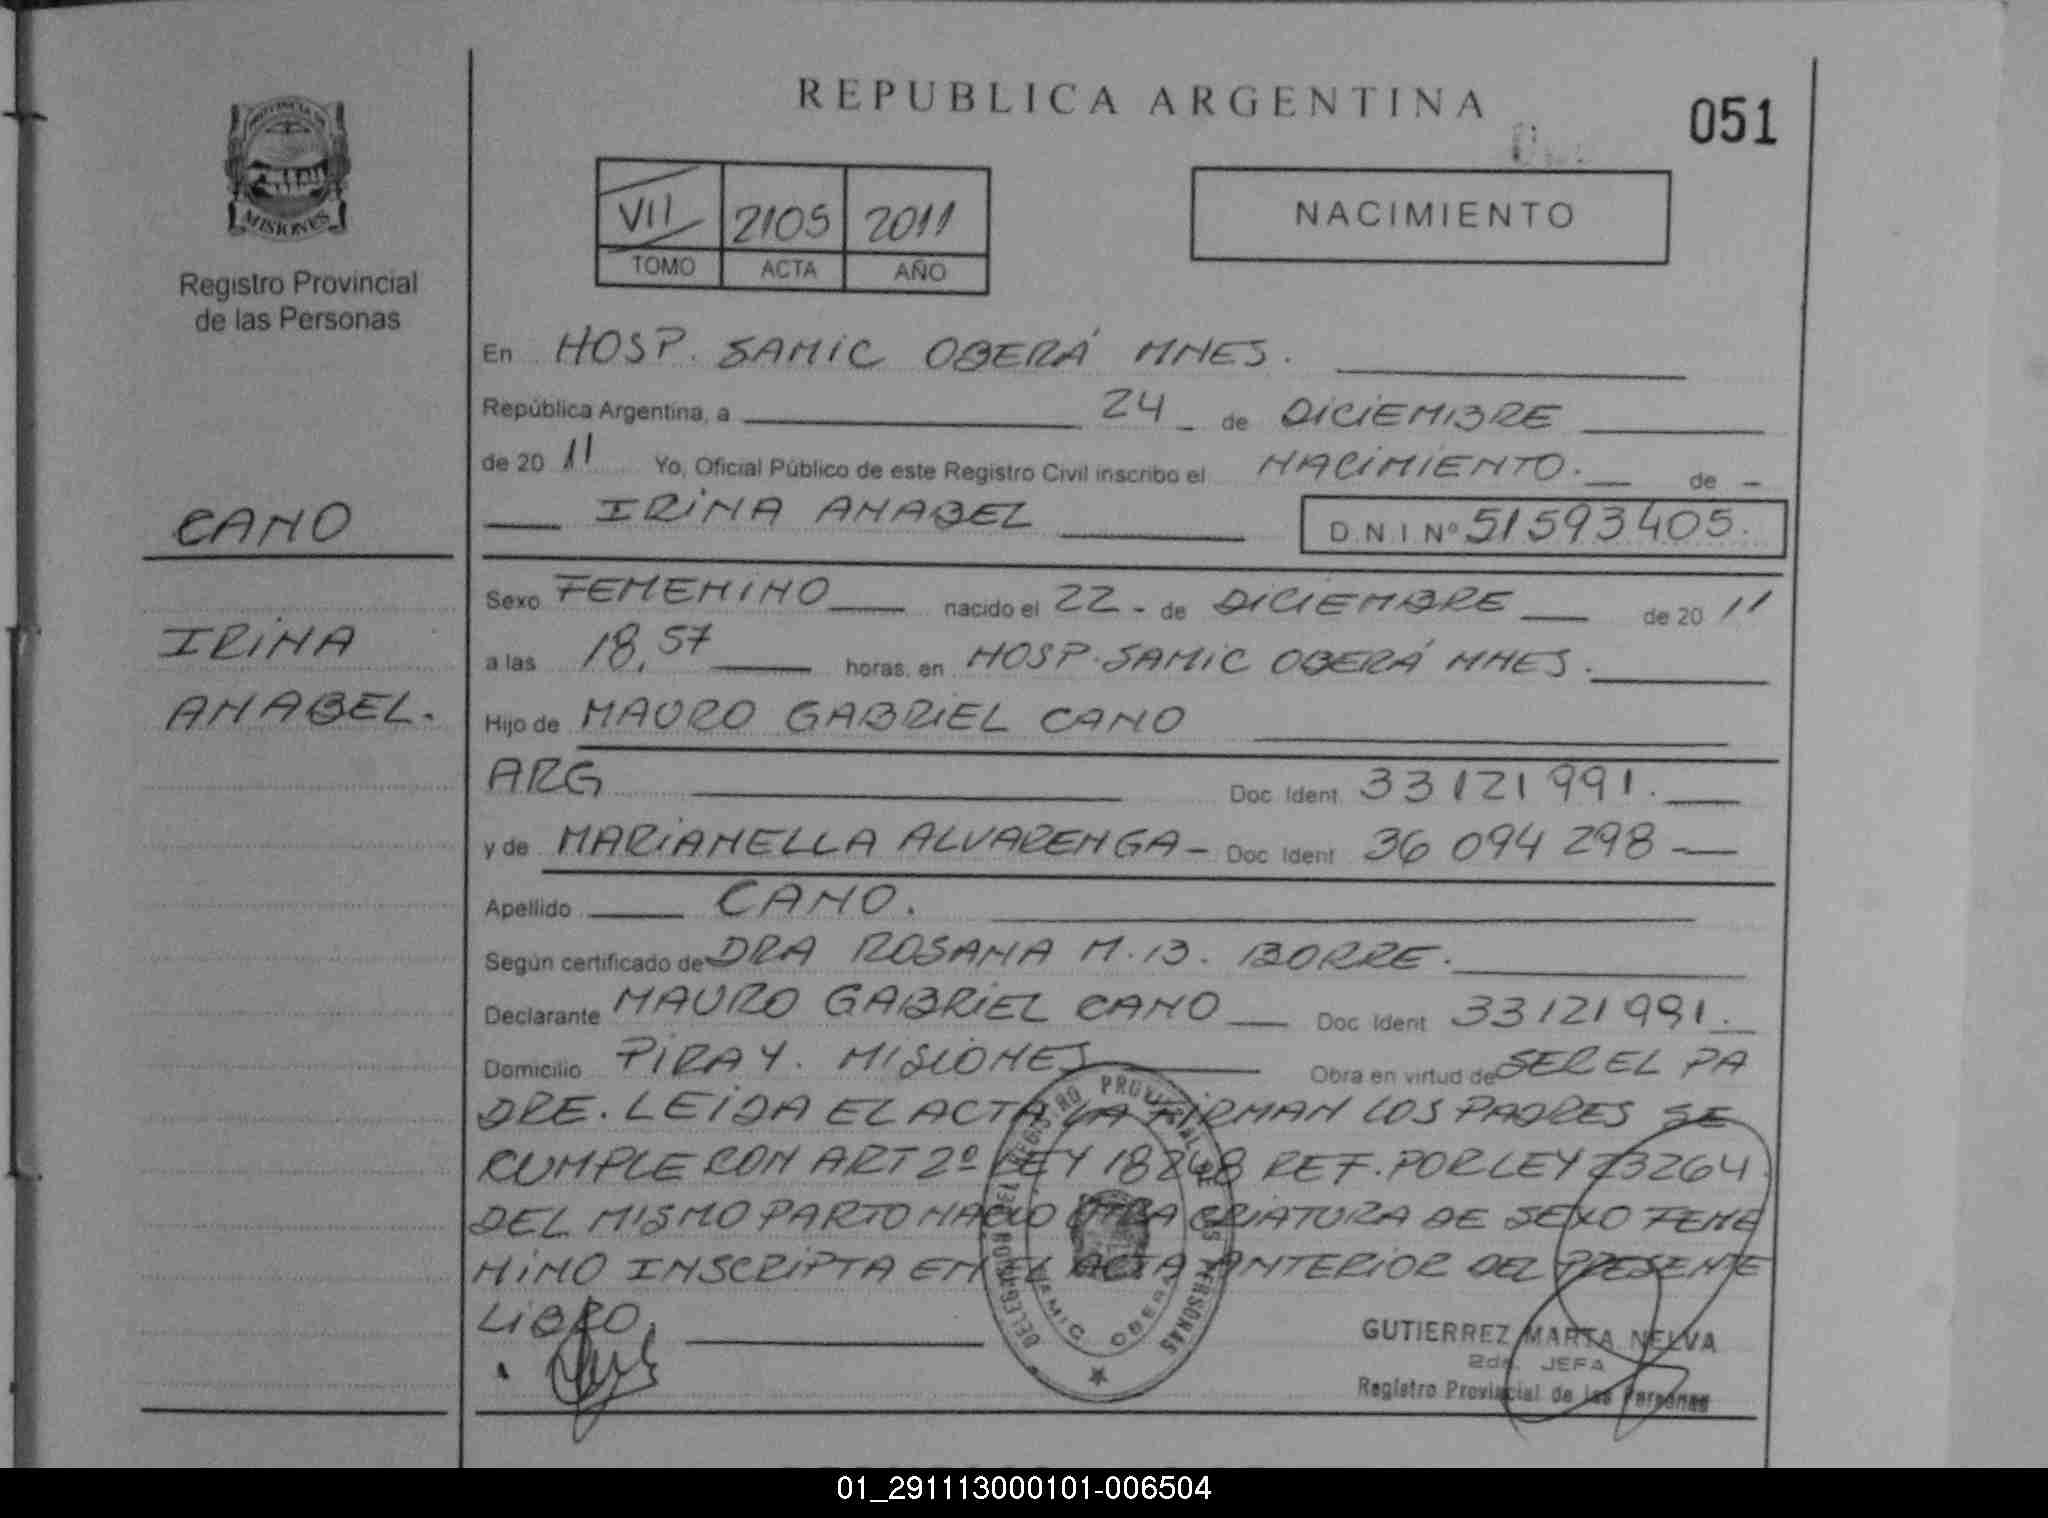 REPUBLICA ARGENTINA
051
PROVINCIA DE
MISIONES
Registro Provincial
de las Personas
VII 2105 2011
TOMO ACTA AÑO
NACIMIENTO
En HOSP. SAMIC OBERÁ MNES.
República Argentina, a 24 de DICIEMBRE
de 20 11 Yo, Oficial Público de este Registro Civil inscribo el NACIMIENTO. de
IRINA ANABEL D.N.I Nº 51593405.
CANO
IRINA
ANABEL.
Sexo FEMENINO nacido el 22 - de DICIEMBRE de 20 11
a las 18,57 horas, en HOSP. SAMIC OBERÁ MNES.
Hijo de MAURO GABRIEL CANO
ARG Doc Ident 33121991.
y de MARIANELLA ALVARENGA - Doc Ident 36094298
Apellido CANO.
Según certificado de DRA ROSANA M.B. BORRE.
Declarante MAURO GABRIEL CANO Doc Ident 33121991.
Domicilio PIRAY. MISIONES Obra en virtud de SER EL PA
DRE. LEIDA EL ACTA LA FIRMAN LOS PADRES SE
CUMPLE CON ART 2º LEY 18248 REF. POR LEY 23264
DEL MISMO PARTO NACIO OTRA CRIATURA DE SEXO FEME
NINO INSCRIPTA EN EL ACTA ANTERIOR DEL PRESENTE
LIBRO.
REGISTRO PROVINCIAL DE LAS PERSONAS
SAMIC OBERA
GUTIERREZ MARTA NELVA
2da. JEFA
Registro Provincial de las Personas
01_291113000101-006504